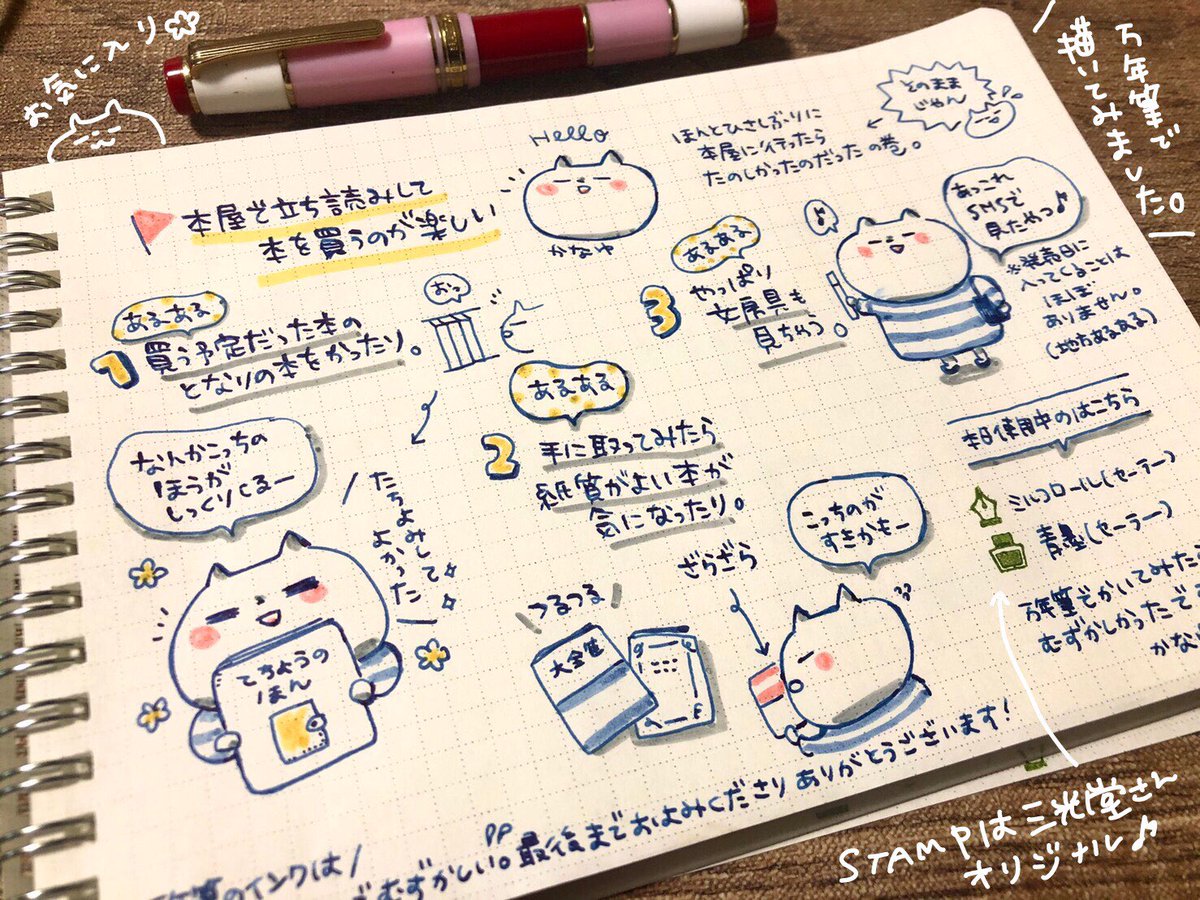 お気に入り
万年筆で
描いてみました。
Hello
かなや
そのまま
じゃん
ほんとひさしぶりに
本屋に行ったら
たのしかったのだったの巻。
本屋で立ち読みして
本を買うのが楽しい
あるある
1
買う予定だった本の
となりの本をかったり。
おっ
なんかこっちの
ほうが
しっくりくるー
たちよみして
よかった
てちょうの
ほん
あるある
2
手に取ってみたら
紙質がよい本が
気になったり。
つるつる
大全集
ざらざら
こっちのが
すきかもー
あるある
3
やっぱり
文房具も
見ちゃう。
♪
あっこれ
SNSで
見たやつ♪
※発売日に
入ってくることは
ほぼ
ありません。
(地方あるある)
本日使用中のはこちら
ミルコロール(セーラー)
青墨(セーラー)
万年筆でかいてみた
むずかしかったで
かな
のインクは
むずかしい。最後までおよみくださりありがとうございます!
STAMPは三光堂さん
オリジナル♪